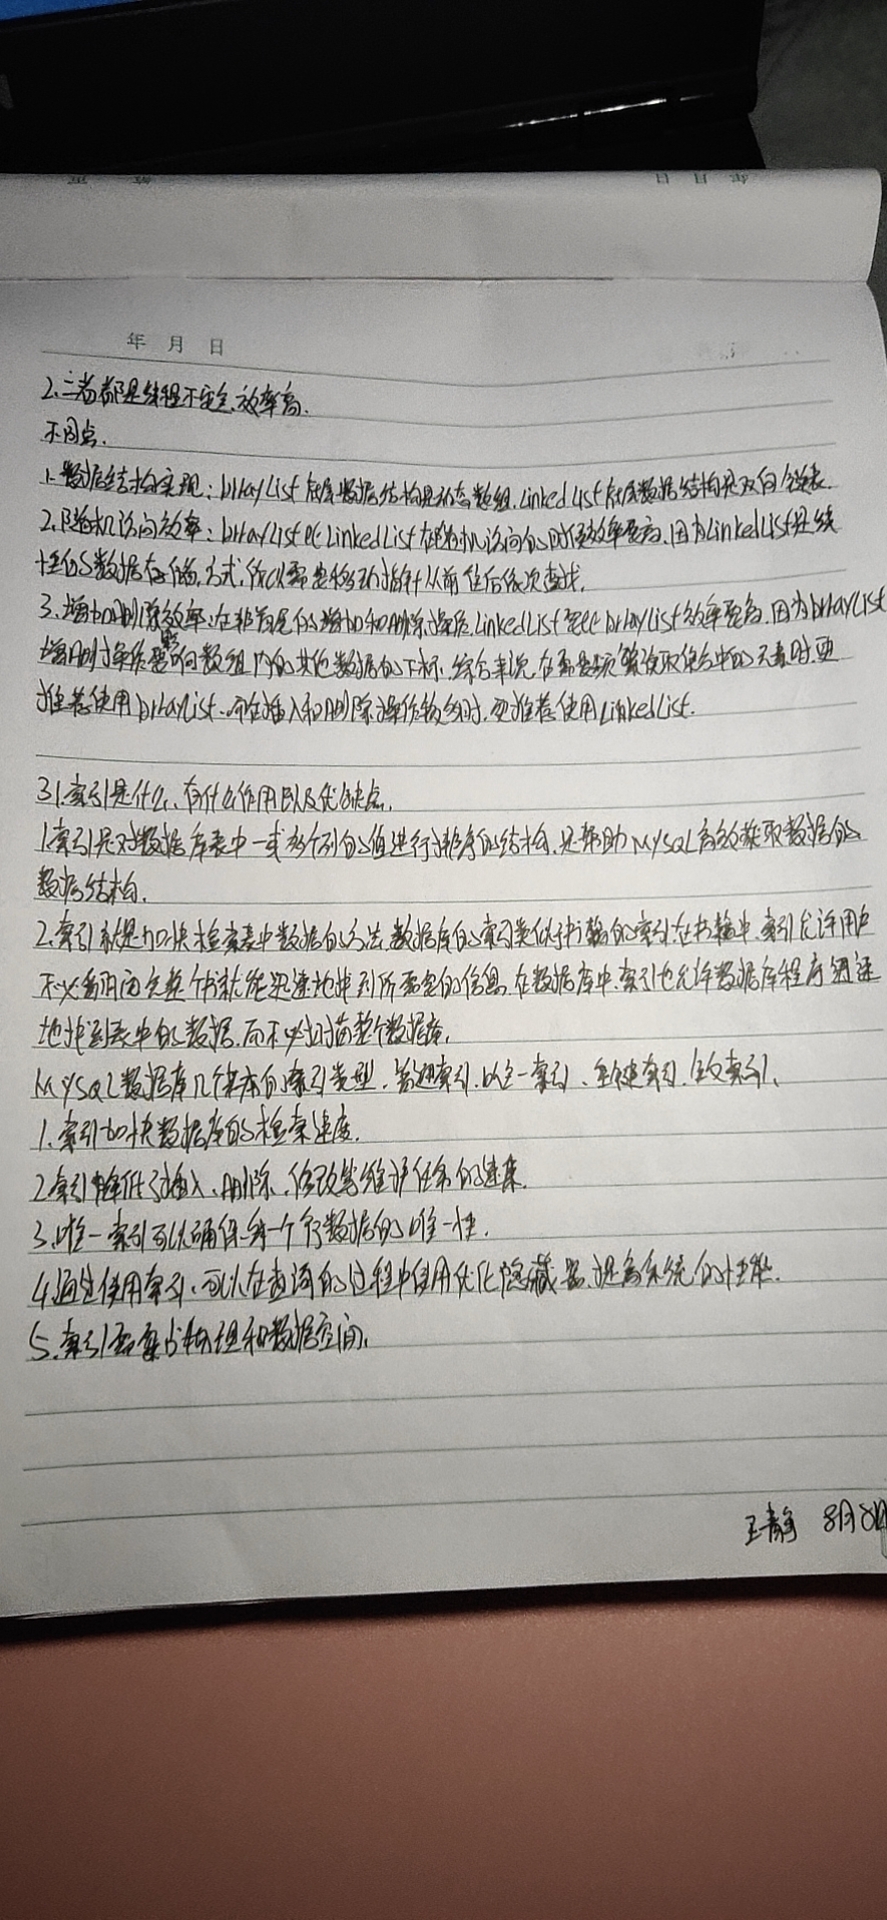 年 月 日
2.二者都是线程不安全,效率高.
不同点.
1.数据结构实现:ArrayList底层数据结构是动态数组,LinkedList底层数据结构是双向链表.
2.随机访问效率:ArrayList比LinkedList在随机访问的时候效率要高,因为LinkedList是线
性的数据存储方式,所以需要移动指针从前往后依次查找.
3.增加删除效率:在非首尾的增加和删除操作,LinkedList要比ArrayList效率要高,因为ArrayList
增删操作要影响数组内的其他数据的下标.综合来说,在需要频繁读取集合中的元素时,更
推荐使用ArrayList.而在插入和删除操作较多时,更推荐使用LinkedList.
31.索引是什么、有什么作用以及优缺点.
1.索引是对数据库表中一或多个列的值进行排序的结构,是帮助MySQL高效获取数据的
数据结构.
2.索引就是加快检索表中数据的方法,数据库的索引类似于书籍的索引,在书籍中,索引允许用户
不必翻阅完整个书就能迅速地找到所需要的信息.在数据库中,索引也允许数据库程序迅速
地找到表中的数据,而不必扫描整个数据库.
MySQL数据库几个基本的索引类型,普通索引、唯一索引、主键索引、全文索引、
1.索引加快数据库的检索速度.
2.索引降低了插入、删除、修改等维护任务的速度.
3.唯一索引可以确保每一个行数据的唯一性.
4.通过使用索引,可以在查询的过程中使用优化隐藏器,提高系统的性能.
5.索引需要占物理和数据空间.
王静 8月8日